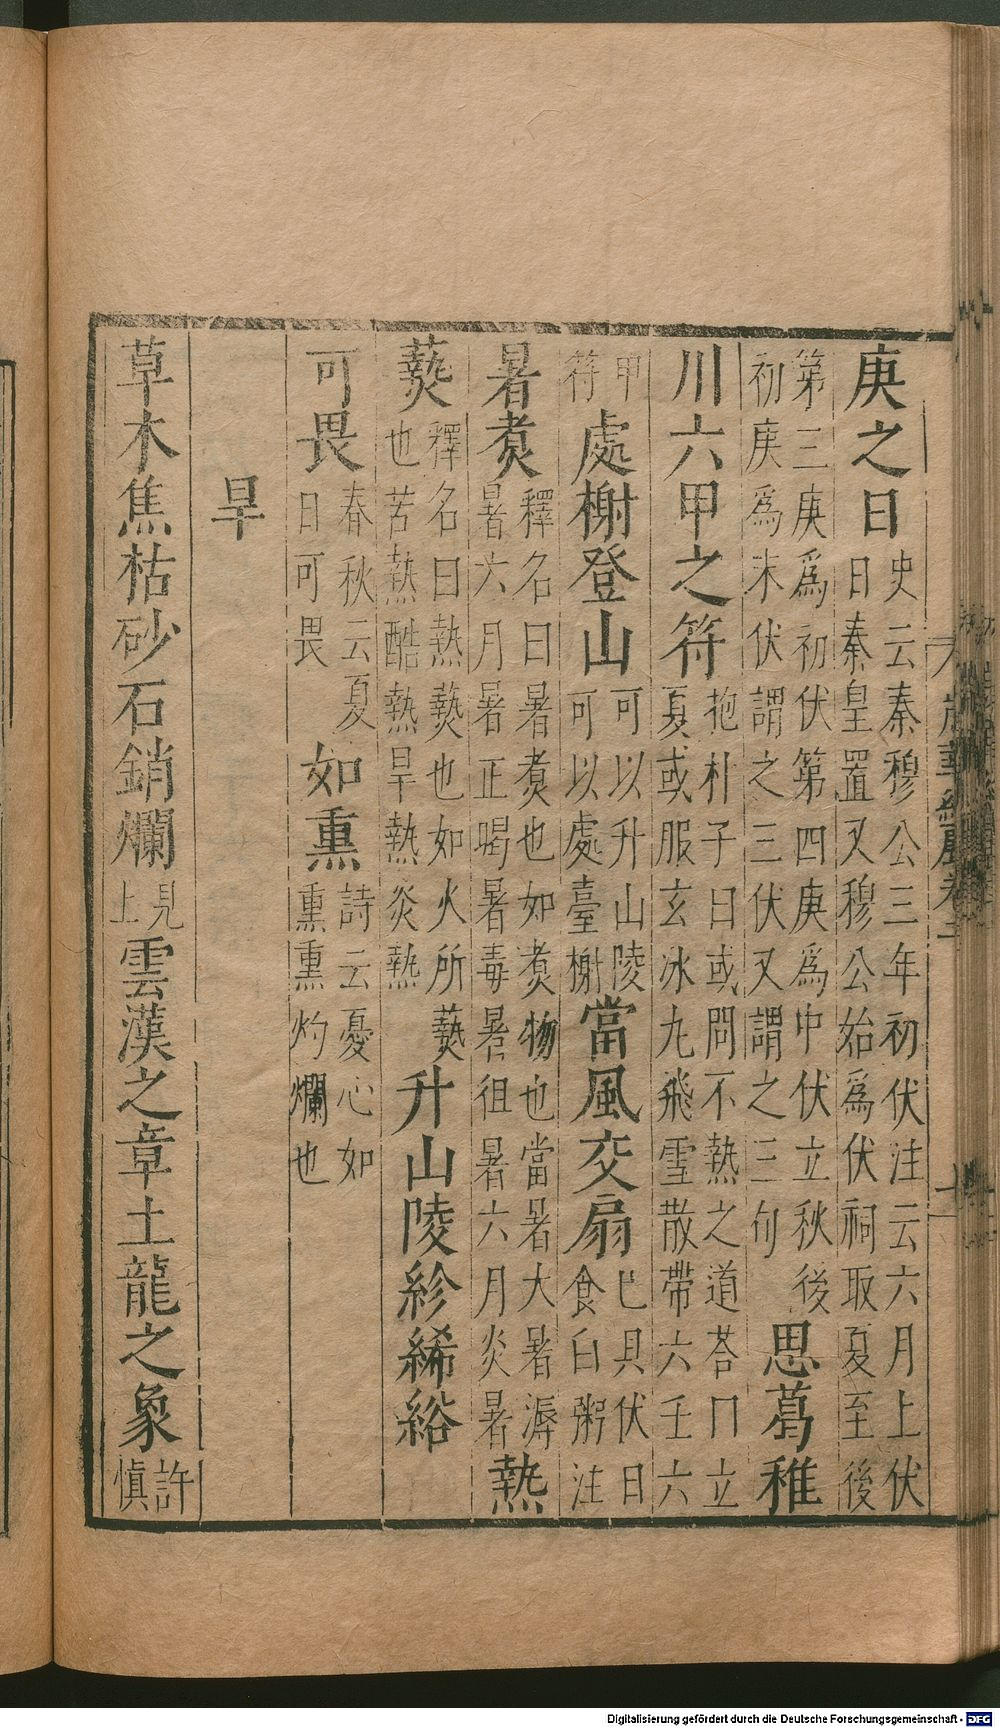 庚之日史云秦穆公三年初伏注云六月上伏日秦皇置又穆公始爲伏祠取夏至後
第三庚爲初伏第四庚爲中伏立秋後初庚爲末伏謂之三伏又謂之三旬思葛稚
川六甲之符抱朴子曰或問不熱之道荅曰立夏或服玄冰九飛雪散帶六壬六
甲符處榭登山可以升山陵可以處臺榭當風交扇已具伏日食白粥注
暑煑釋名曰暑煑也如煑物也當暑大暑溽暑六月暑正暍暑毒暑徂暑六月炎暑熱
爇釋名曰熱爇也如火所爇也苦熱酷熱旱熱炎熱升山陵紾絺綌
可畏春秋云夏日可畏如熏詩云憂心如熏熏灼爛也
旱
草木焦枯砂石銷爛見上雲漢之章土龍之象許慎
Digitalisierung gefördert durch die Deutsche Forschungsgemeinschaft - DFG